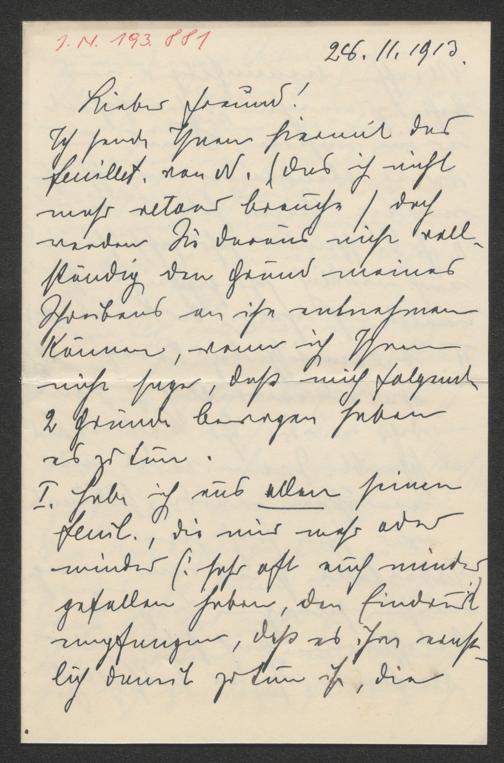 J.N. 193.881
28.11.1913.
Lieber Freund!
Ich sende Ihnen hiermit das
Feuillet. von N. (das ich nicht
mehr retour brauche) doch
werden Sie daraus nicht voll-
ständig den Grund meines
Schreibens an ihn entnehmen
können, wenn ich Ihnen
nicht sage, daß mich folgende
2 Gründe bewogen haben
es zu tun.
I. habe ich aus allen seinen
Feuil., die mir mehr oder
minder (: sehr oft auch minder
gefallen haben, den Eindruck
empfangen, daß es ihm ernst-
lich damit zu tun ist, die